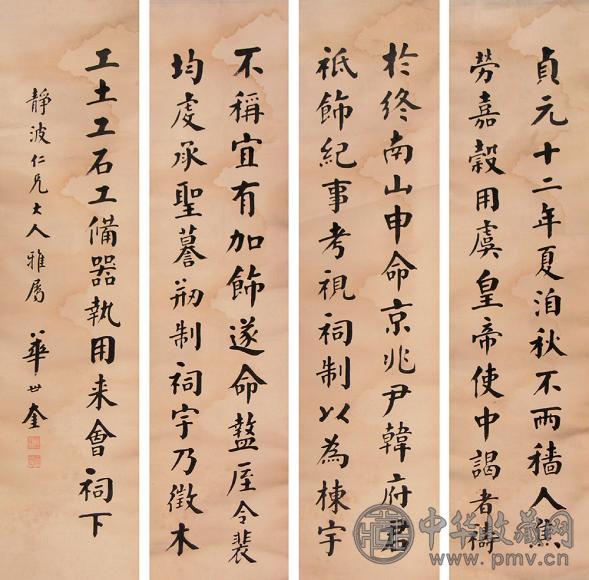 貞元十二年夏洎秋不雨穡人焦
勞嘉穀用虞皇帝使中謁者禱
於終南山申命京兆尹韓府君
祇飾紀事考視祠制以為棟宇
不稱宜有加飾遂命盩厔令裴
均虔承聖謩刱制祠宇乃徵木
工土工石工備器執用来會祠下
靜波仁兄大人雅屬
華世奎
中华收藏网
www.pmv.cn